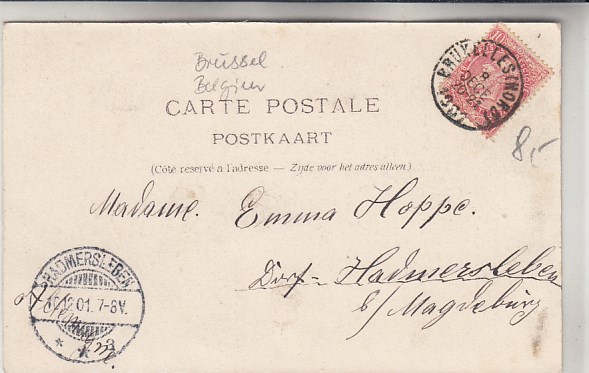 Brüssel
Belgien
CARTE POSTALE
POSTKAART
(Côté réservé à l'adresse — Zijde voor het adres alleen)
BRUXELLES (NORD)
10
8,-
Madame. Emma Hoppe.
Dorf-Hadmersleben
b/ Magdeburg
HADMERSLEBEN
12.01. 7-8V.